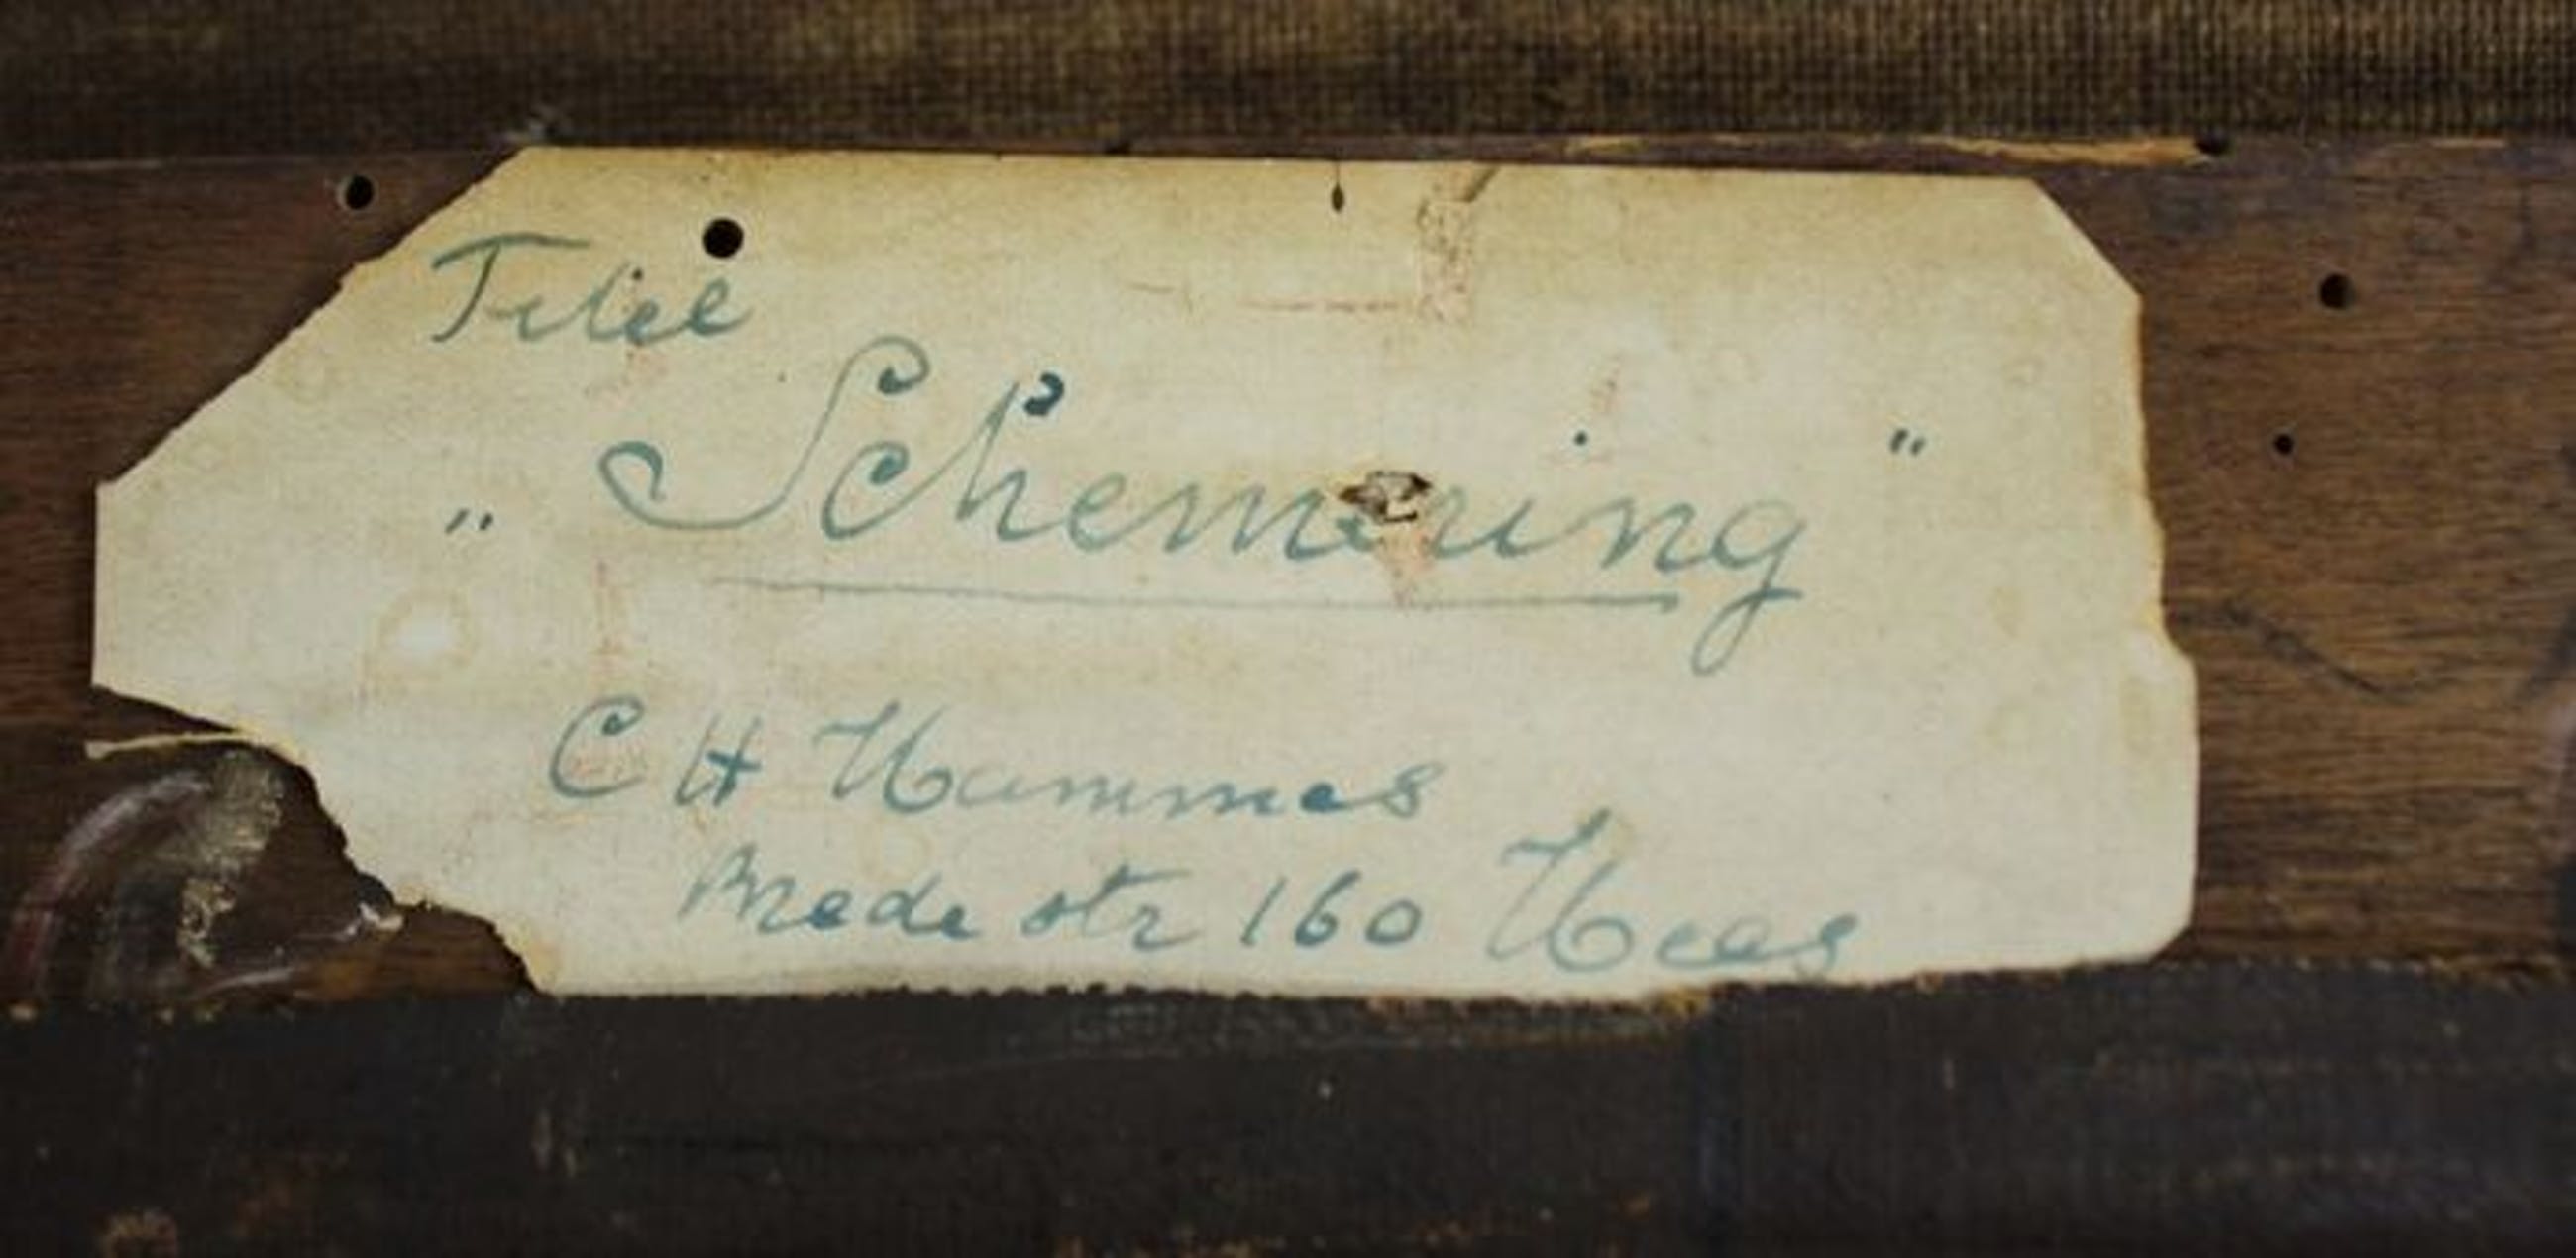 Titel
„ Schemering "
C H Hammes
Brede str 160 Hees